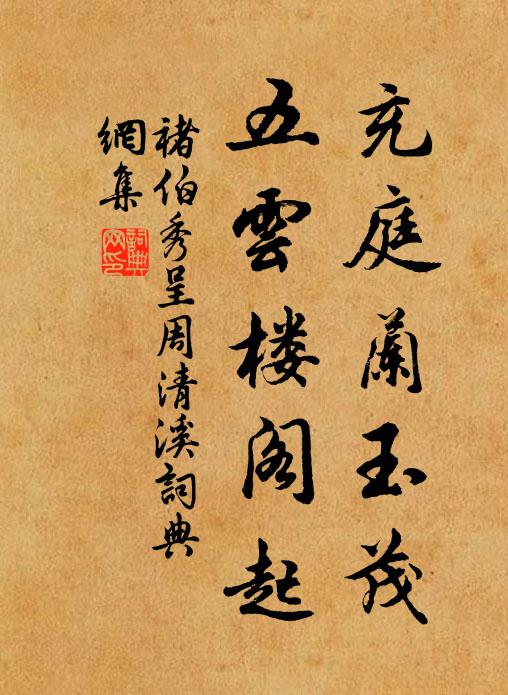 充庭蘭玉茂
五雲楼阁起
褚伯秀呈周清溪詞典
網集
詞典
网印